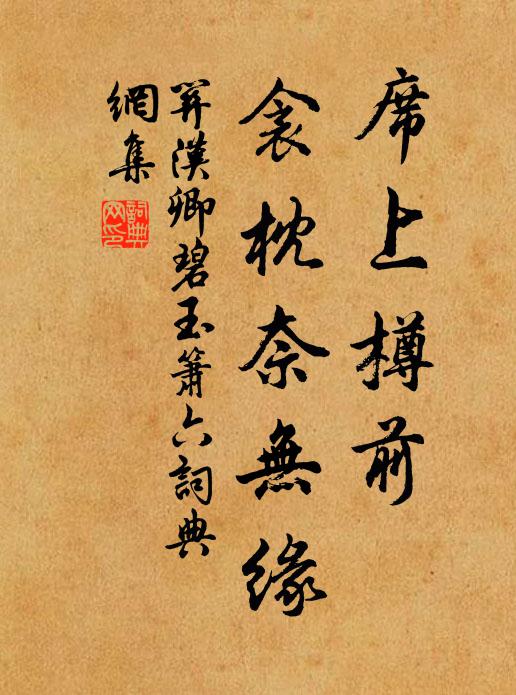 席上樽前
衾枕奈無緣
關漢卿碧玉簫六詞典
網集
詞典
网印